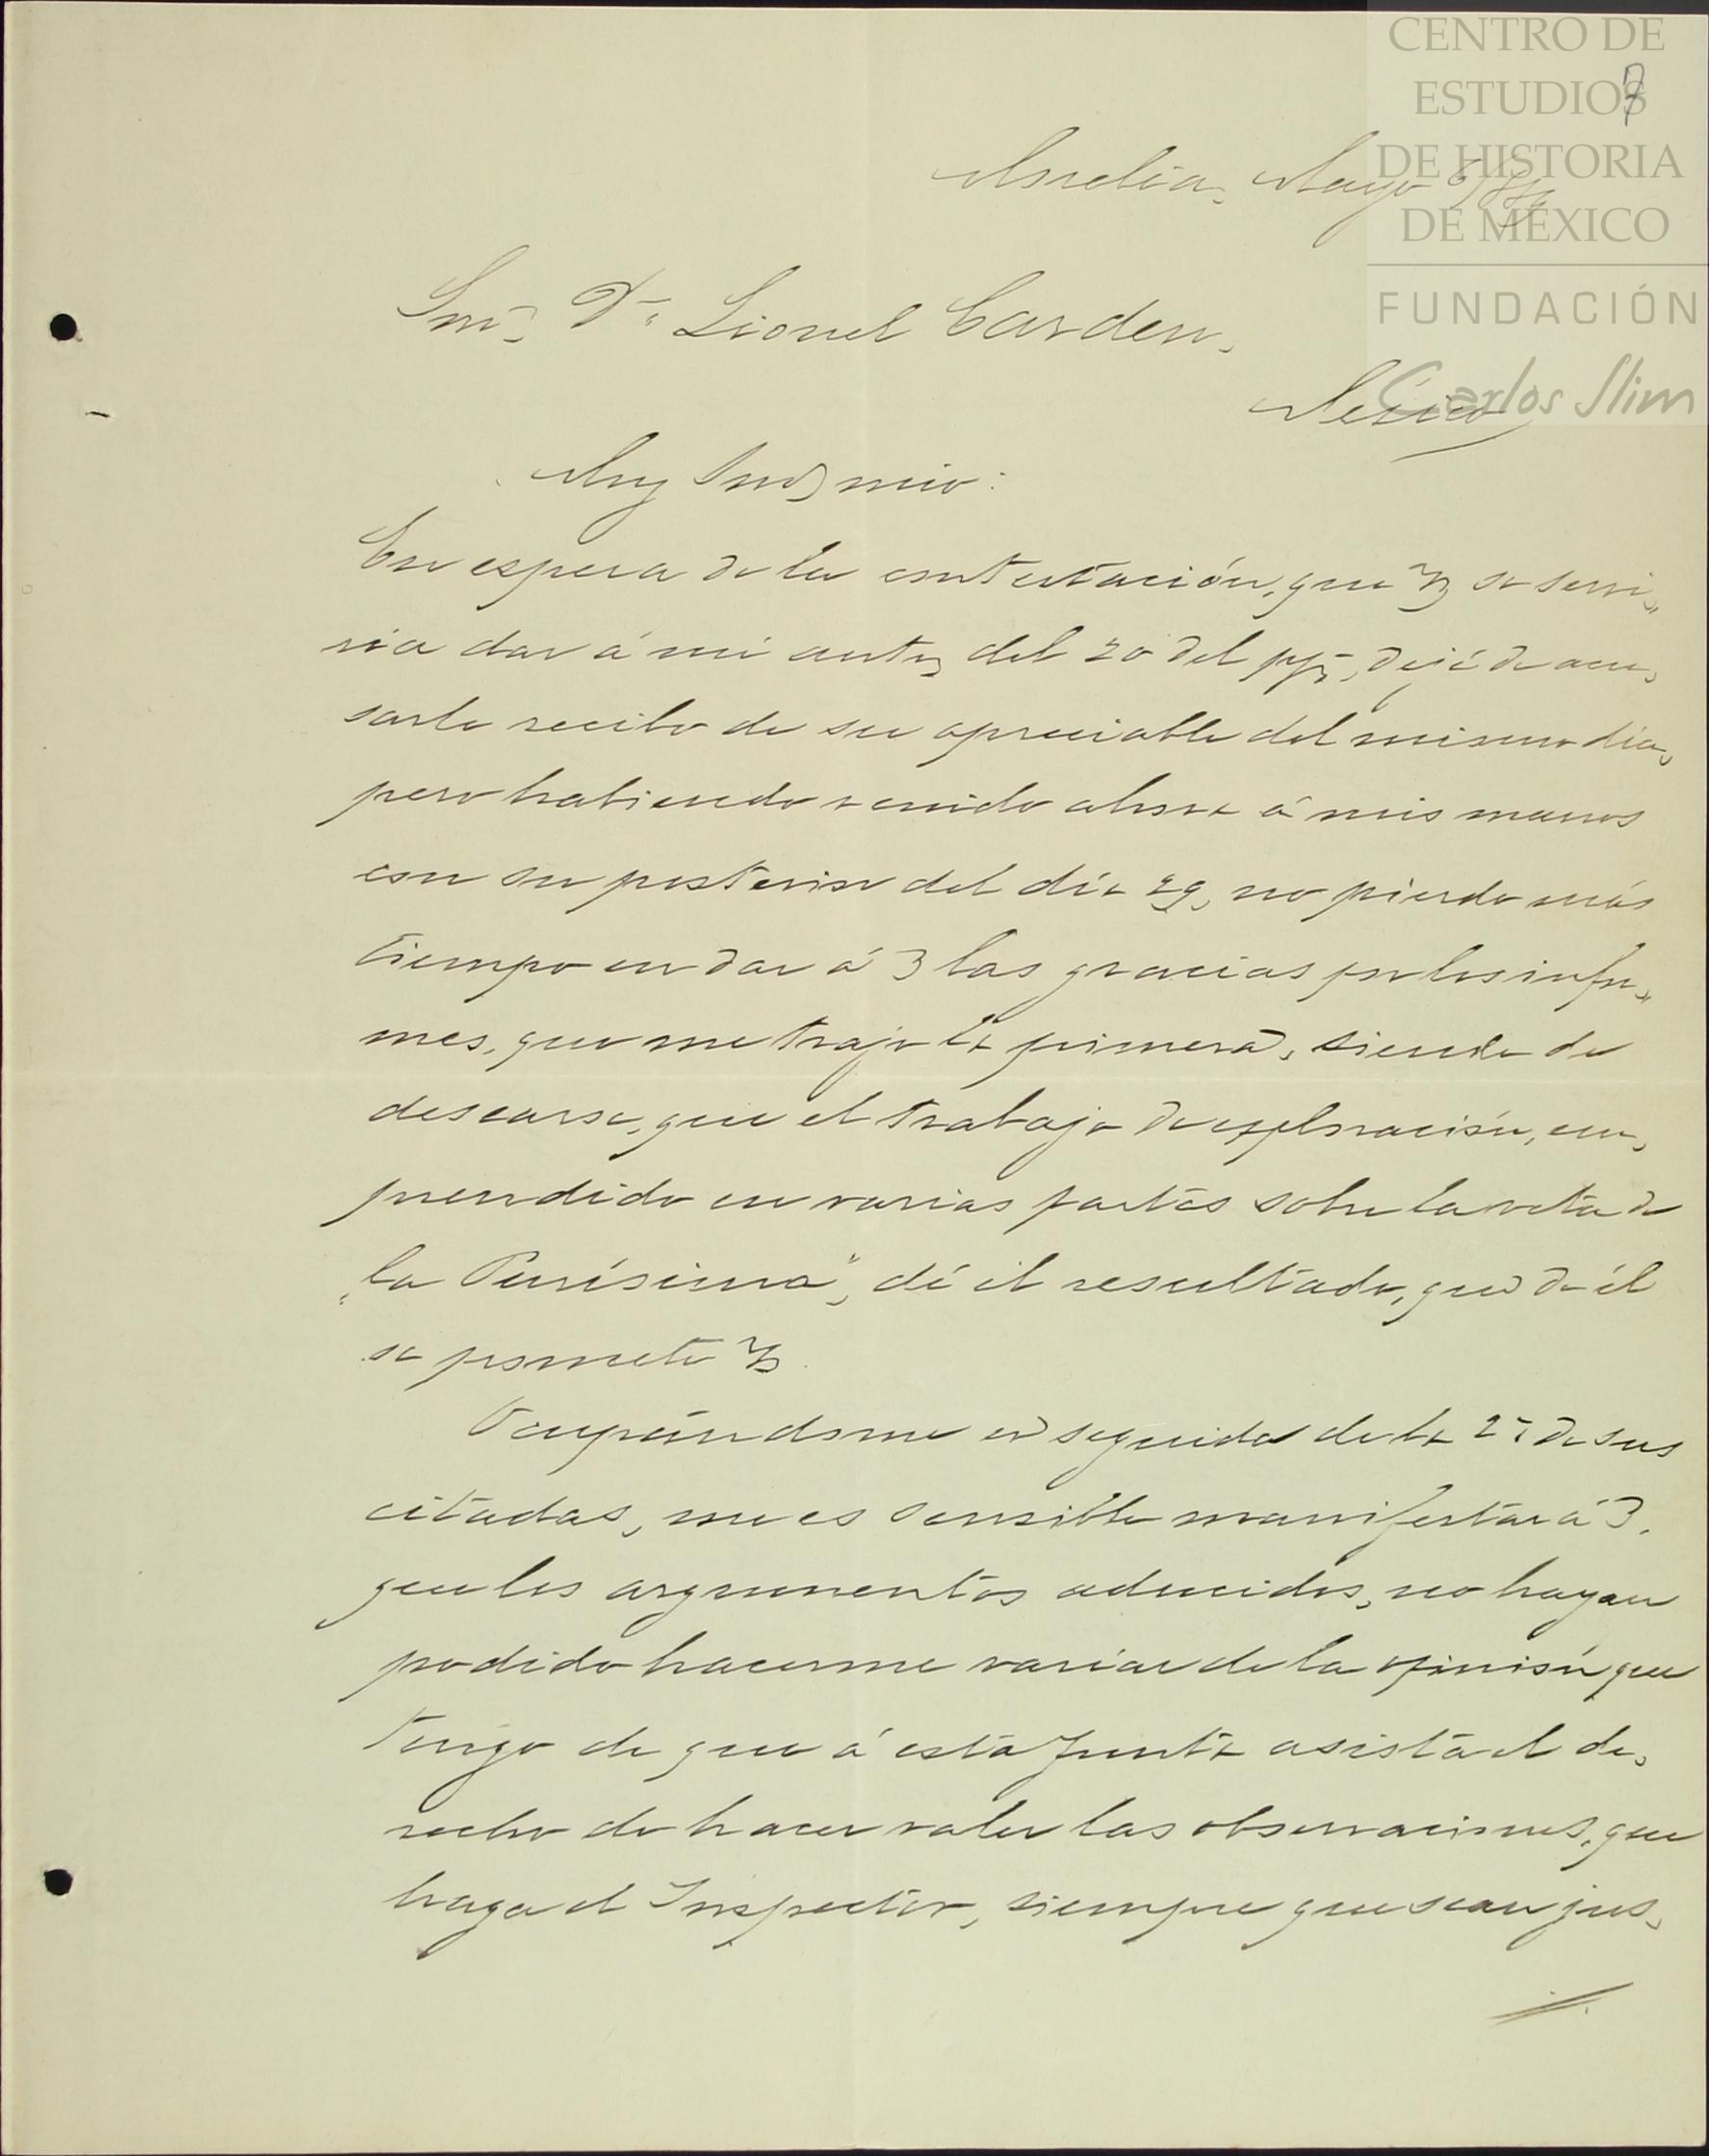 CENTRO DE
ESTUDIOS
DE HISTORIA
DE MÉXICO
FUNDACIÓN
Carlos Slim
7
Morelia, Mayo
Sr. Dn. Lionel Carden,
México
Muy Sr. mio:
En espera de la contestación, que V. se servi„
ria dar á mi antr. del 20 del ppo., dejé de acu„
sarle recibo de su apreciable del mismo dia,
pero habiendo venido ahora á mis manos
con su posterior del día 29, no pierdo más
tiempo en dar á V. las gracias por los infor„
mes, que me trajo la primera, siendo de
desearse, que el trabajo de exploración, em„
prendido en varias partes sobre la veta de
„la Purísima", dé el resultado, que de él
se promete V.
Ocupándome en seguida de la 2ª de sus
citadas, me es sensible manifestar á V.
que los argumentos aducidos, no hayan
podido hacerme variar de la opinión que
tengo de que á esta Junta asista el de„
recho de hacer valer las observaciones, que
haga el Inspector, siempre que sean jus„
//.